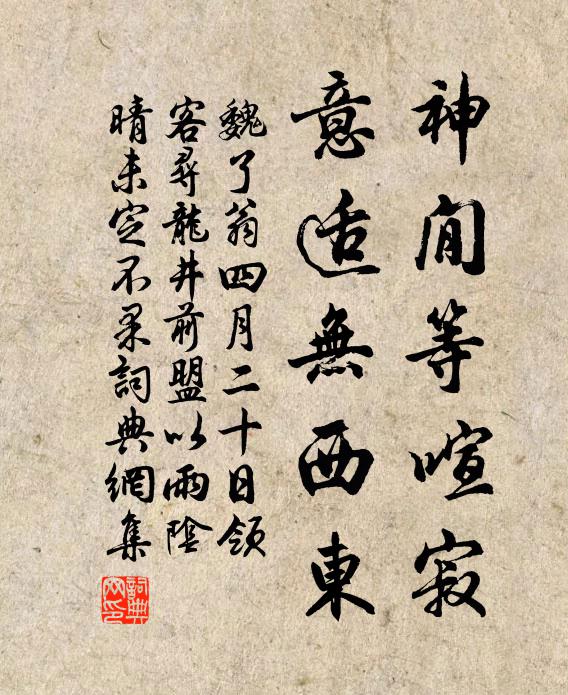 神閒等喧寂
意适無西東
魏了翁四月二十日領
客尋龍井前盟以雨陰
晴未定不果詞典網集
詞典
网印